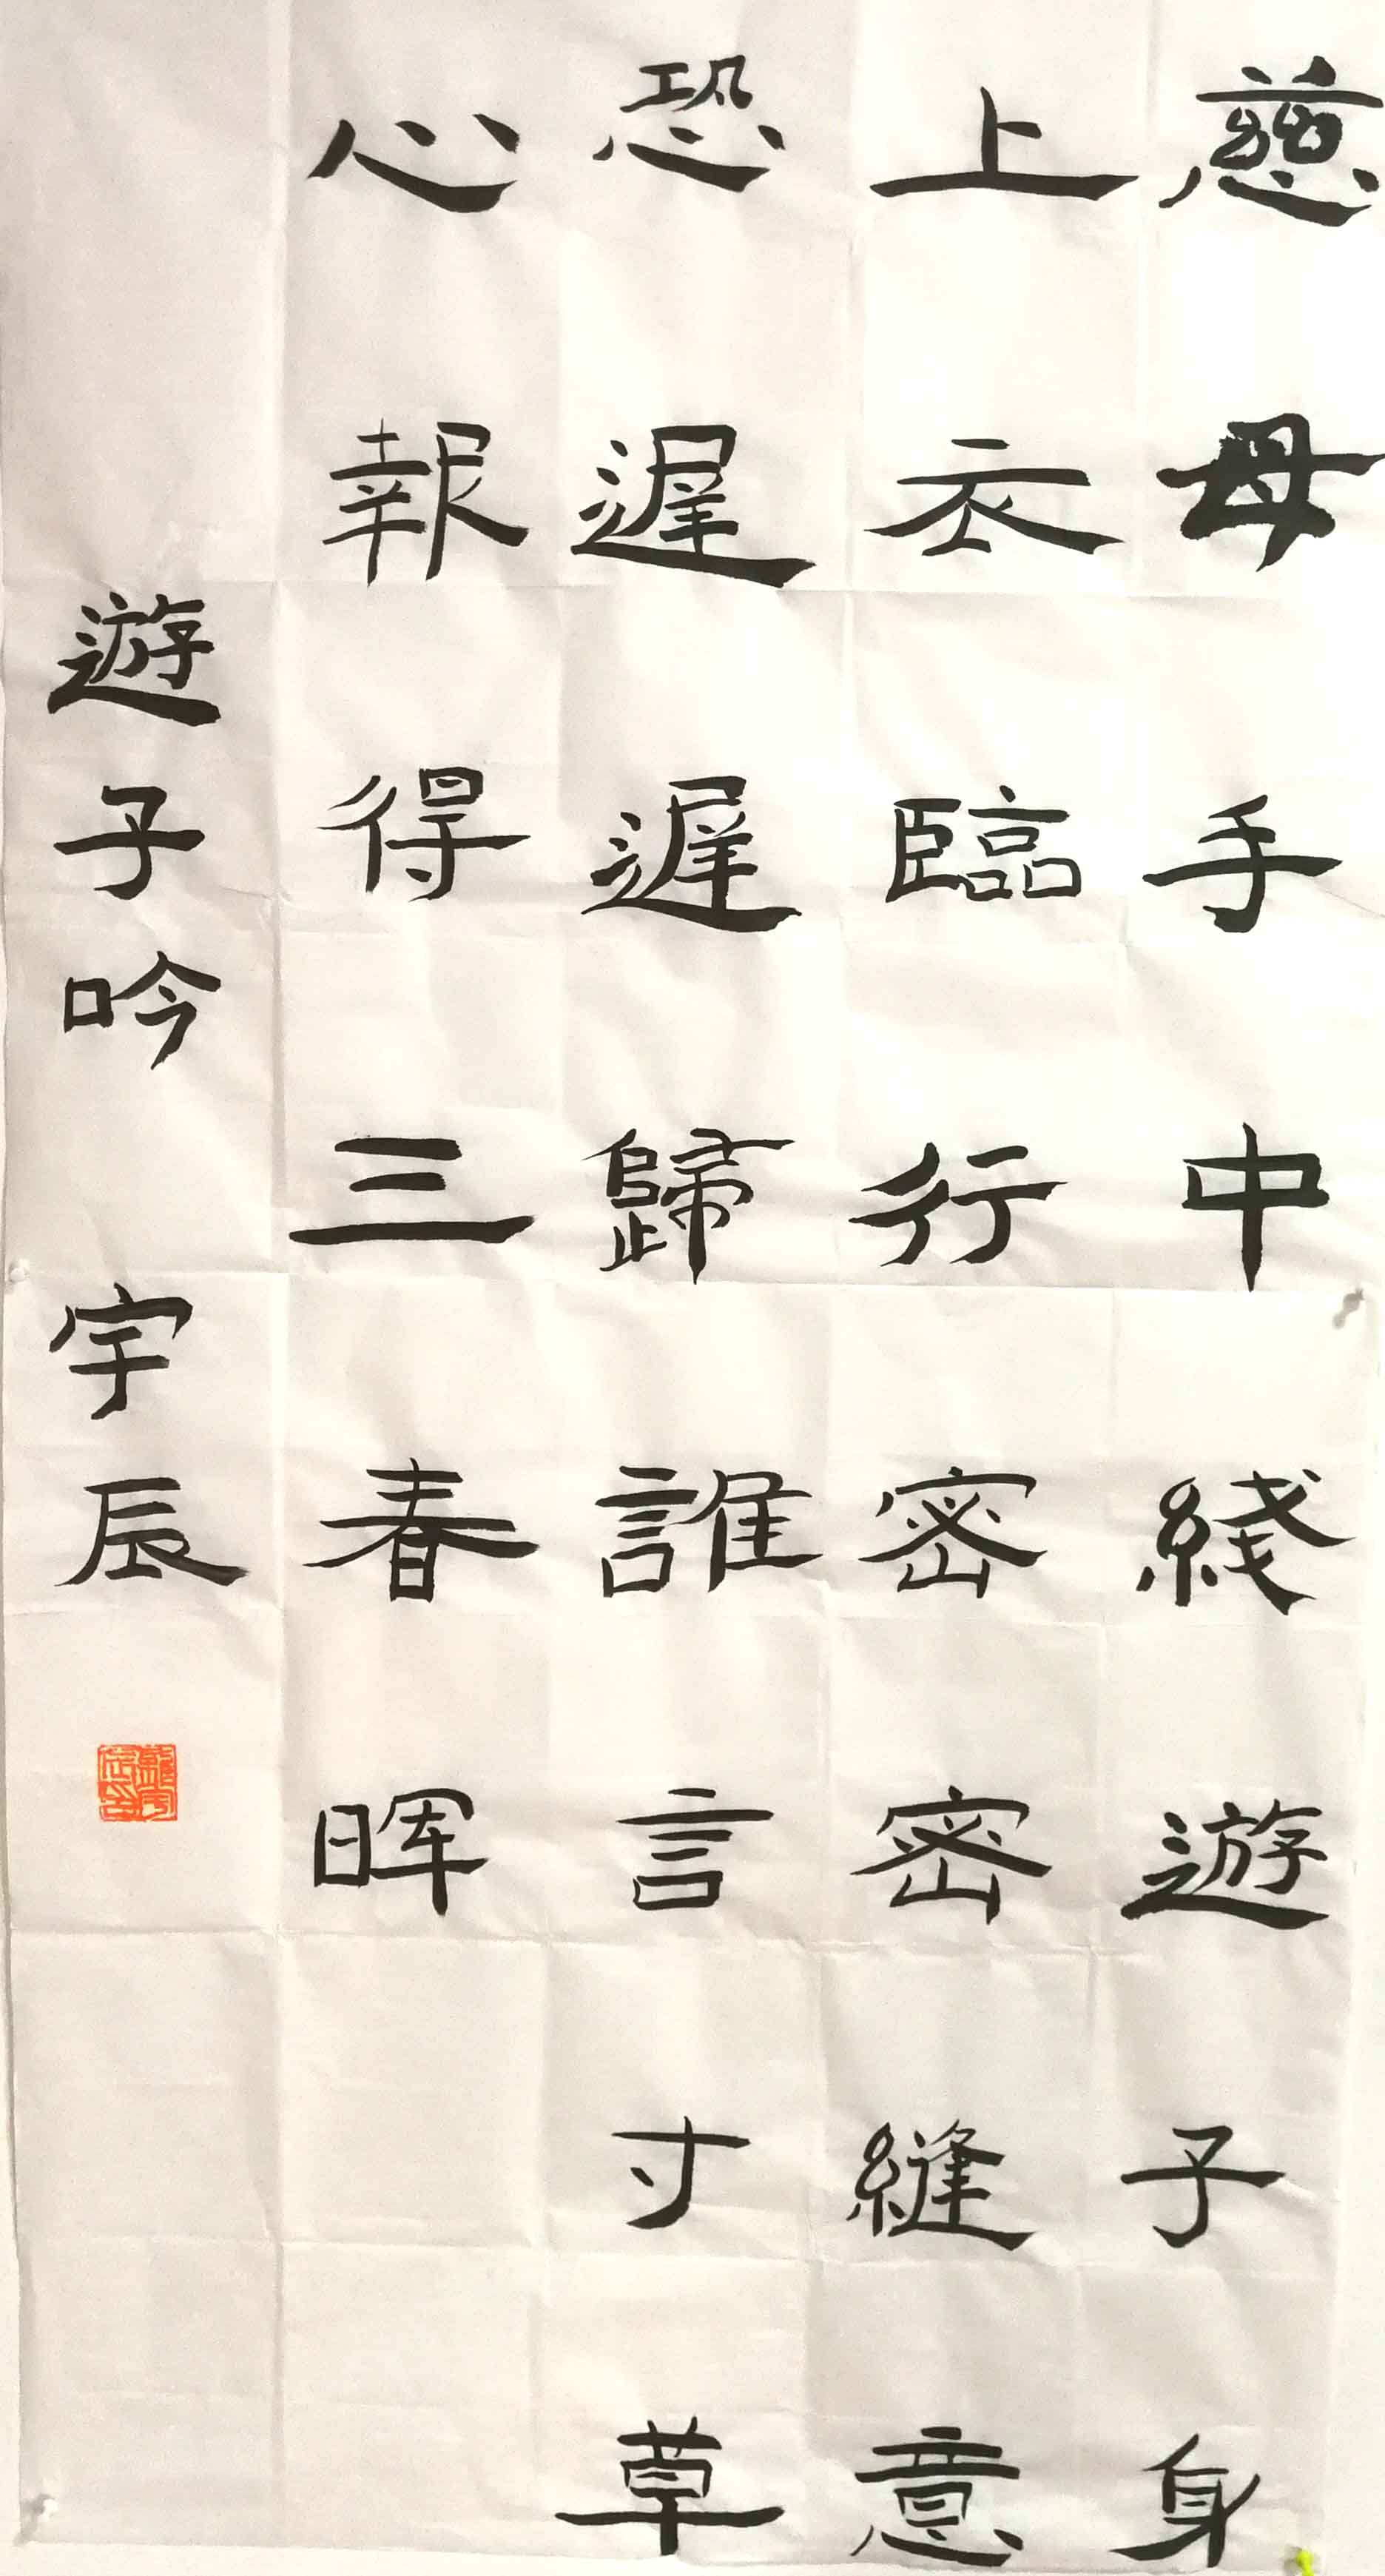 慈母手中綫遊子身
上衣臨行密密縫意
恐遲遲歸誰言寸草
心報得三春晖
遊子吟 宇辰